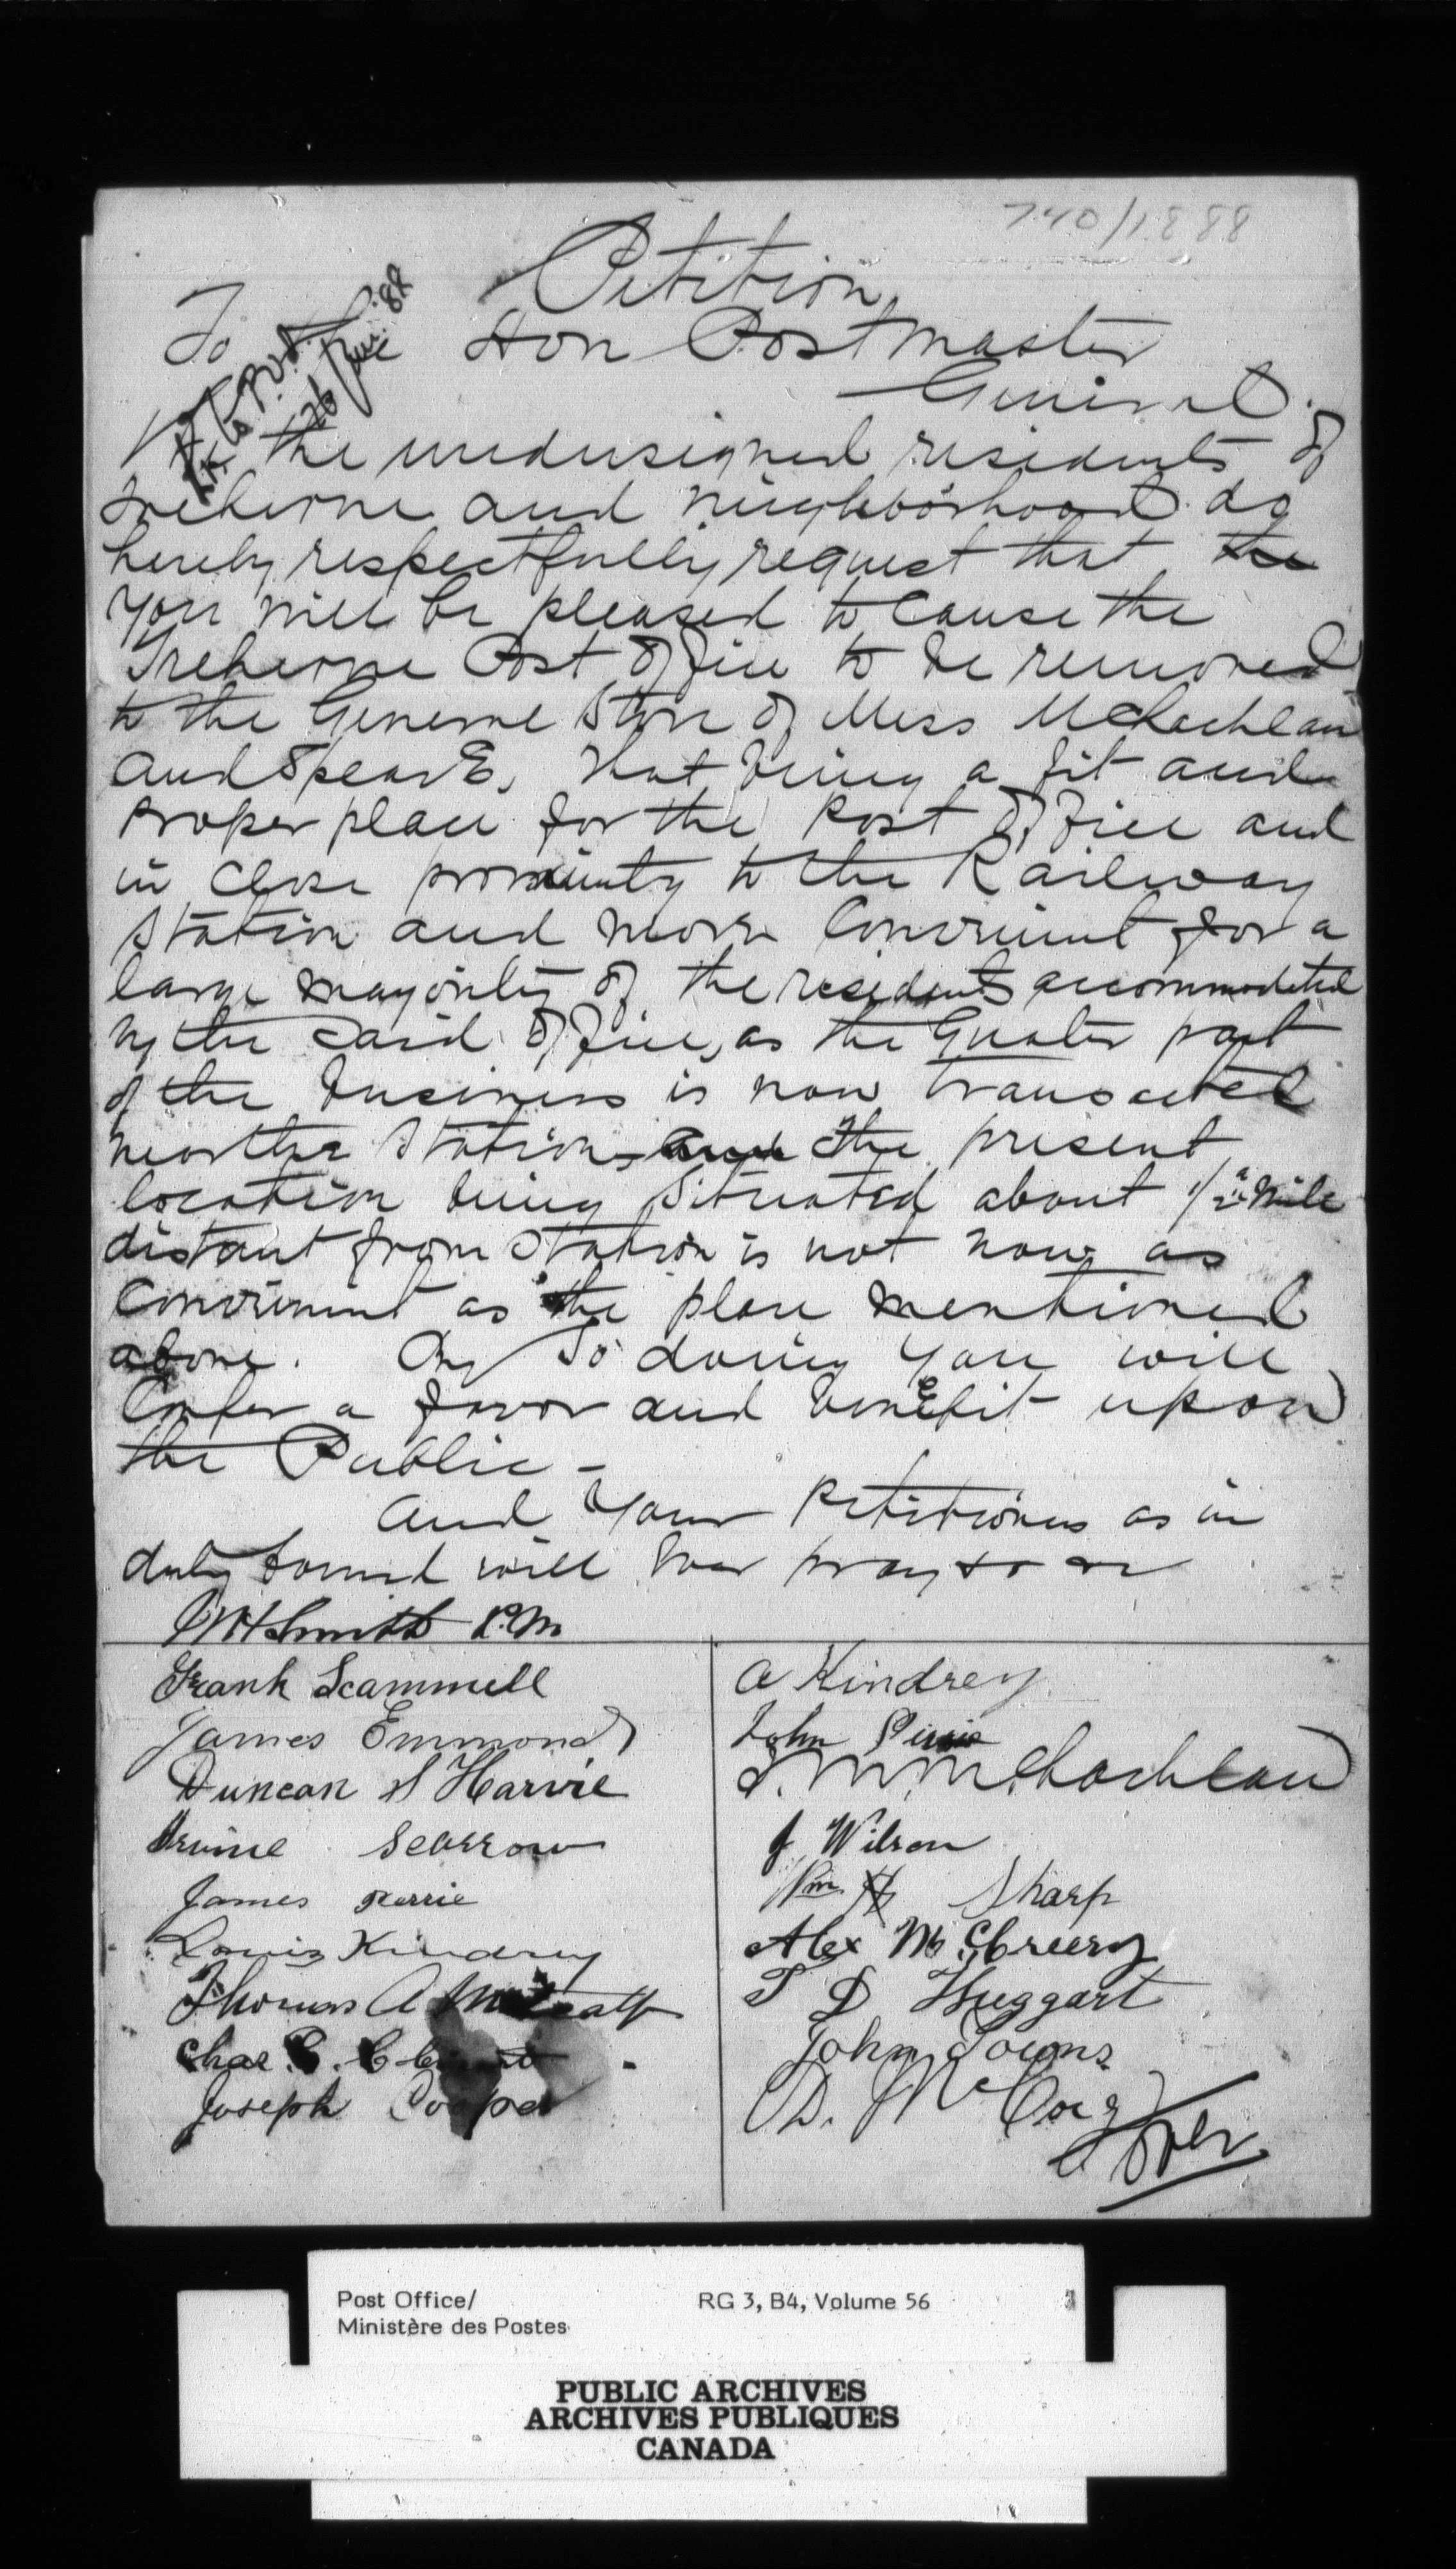 740/1888
Petition
To the Hon Postmaster
General.
26 Jan. 88
We the undersigned residents of
Treherne and neighborhood do
hereby respectfully request that the
you will be pleased to cause the
Treherne Post Office to be removed
to the General Store of Mess McLachlan
and Spears, that being a fit and
proper place for the Post Office and
in close proximity to the Railway
Station and more convenient for a
large majority of the residents accommodated
by the said Office, as the Greater part
of the business is now transacted
near the Station, and the present
location being situated about 1/2 a mile
distant from Station is not now as
convenient as the place mentioned
above. By so doing you will
confer a favor and benefit upon
the Public -
And Your Petitioners as in
duty bound will ever pray &c &c
WH Smith P.M
Frank Scammell
James Emmond
Duncan S Harvie
Irvine Scarrow
James Perrie
Louis Kindrey
Thomas A Metcalf
Chas
Joseph Cooper
A Kindrey
John Pirrie
McLachlan
J Wilson
Wm H Sharp
Alex McCreery
T D Huggart
John Towns
D. McCaig
Over
Post Office/
Ministère des Postes
RG 3, B4, Volume 56
PUBLIC ARCHIVES
ARCHIVES PUBLIQUES
CANADA